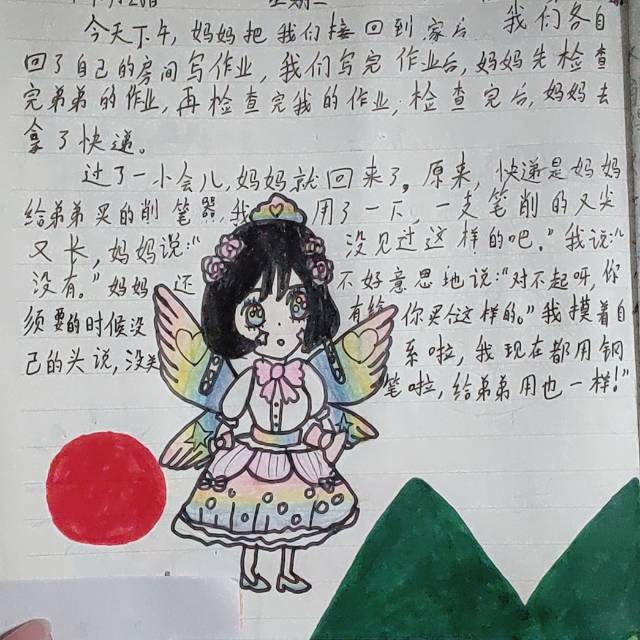 今天下午,妈妈把我们接回到家后 我们各自
回了自己的房间写作业,我们写完作业后,妈妈先检查
完弟弟的作业,再检查完我的作业,检查完后,妈妈去
拿了快递。
过了一小会儿,妈妈就回来了。原来,快递是妈妈
给弟弟买的削笔器,我 用了一下,一支笔削的又尖
又长,妈妈说:“ 没见过这样的吧。”我说:“
没有。”妈妈 还 不好意思地说:“对不起呀,你
须要的时候没 有给你买个这样的。”我摸着自
己的头说,没关 系啦,我现在都用钢
笔啦,给弟弟用也一样!”